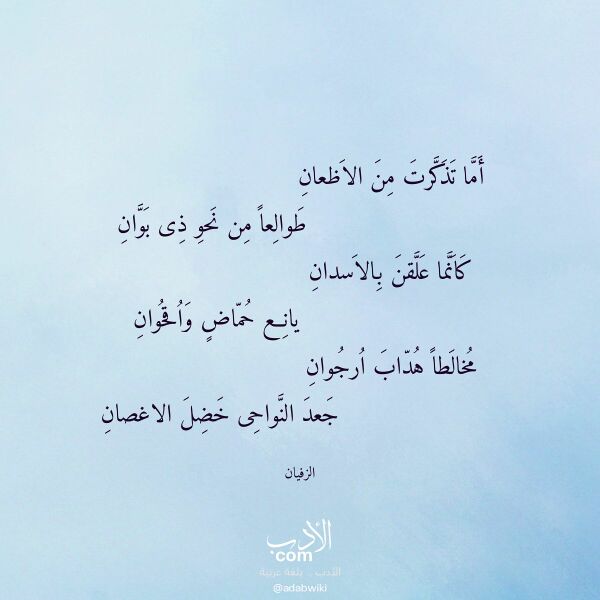 أَمَّا تَذَكَّرتَ مِنَ الاَظعانِ
طَوالِعاً مِن نَحوِ ذِى بَوَّانِ
كَاَنَّما عَلَّقنَ بِالاَسدانِ
يانِع حُمّاضٍ وَاُقحُوانِ
مُخالَطاً هُدّابَ اُرجُوانِ
جَعدَ النَّواحِى خَضِلَ الاغصانِ
الزفيان
الأدب
com
الأدب .. بلغة عربية
@adabwiki